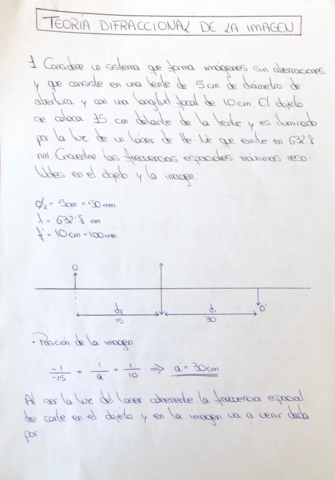 TEORÍA DIFRACCIONAL DE LA IMAGEN
1 Considere un sistema que forma imágenes sin aberraciones
y que consiste en una lente de 5 cm de diámetro de
abertura y con una longitud focal de 10 cm. El objeto
se coloca 15 cm delante de la lente y es iluminado
por la luz de un láser de He-Ne que emite en 632'8
nm. Encuentre las frecuencias espaciales máximas reso-
lubles en el objeto y la imagen
= 5cm = 50 mm
λ = 632'8 nm
f' = 10cm = 100mm
O
d₁
15
d₂
30
O'
• Posición de la imagen
-1/-15 + 1/a' = 1/10 ⇒ a' = 30 cm
Al ser la luz del láser coherente la frecuencia espacial
de corte en el objeto y en la imagen va a venir dada
por: